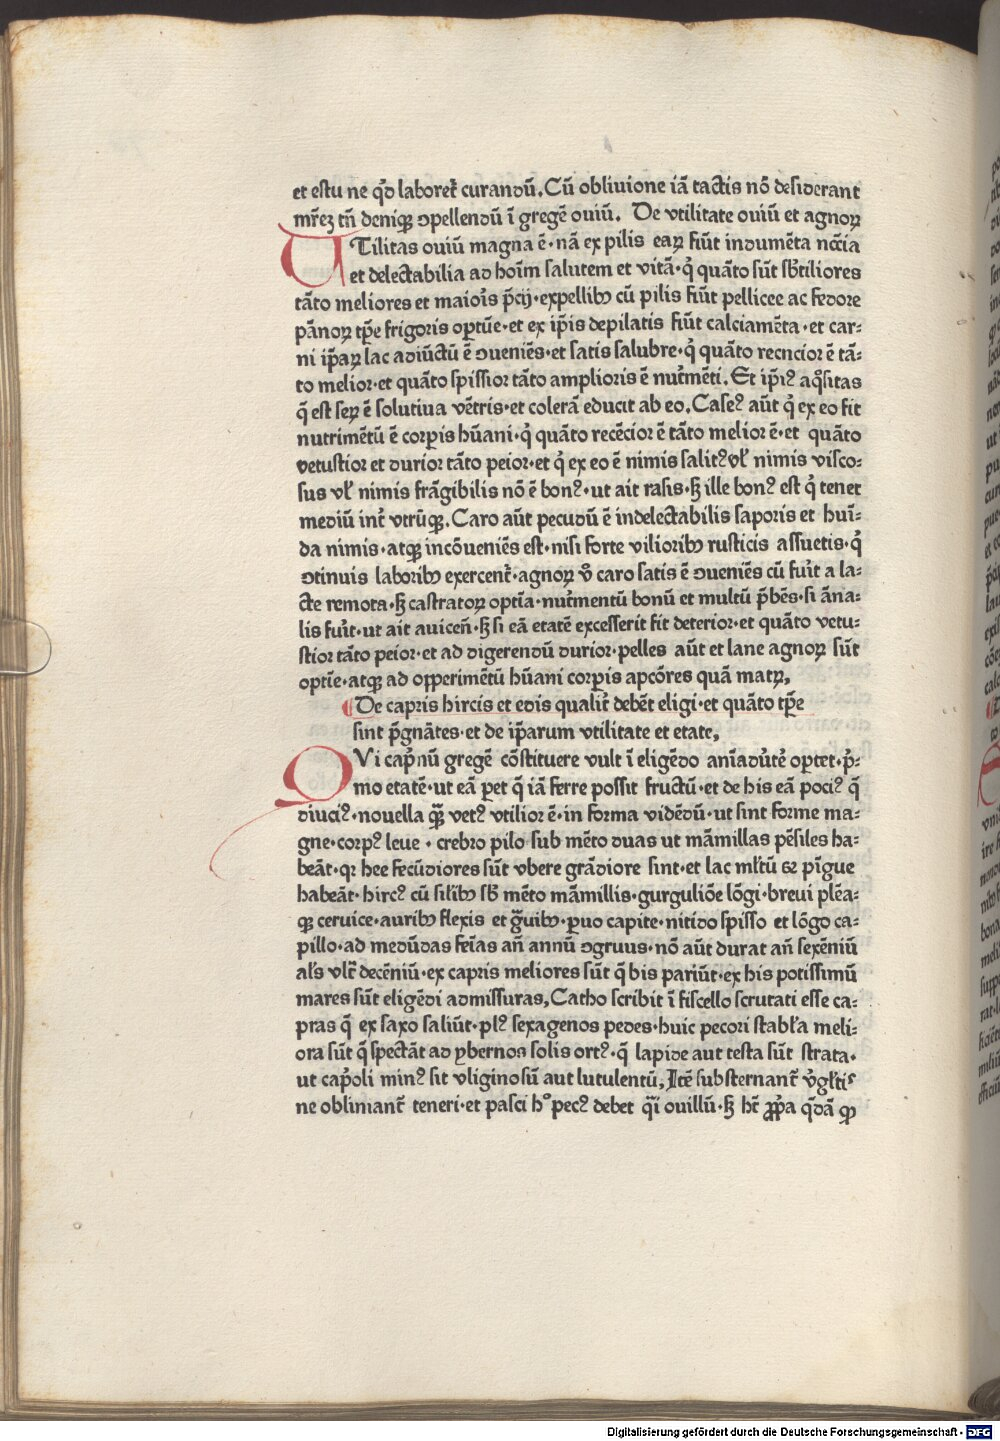 et estu ne qd̄ laboret᷑ curandū. Cū obliuione iā tactis nō desiderant
mr̄eʒ tn̄ deniqꝫ ꝯpellendū ī gregē ouiū. De vtilitate ouiū et agnoꝝ
UTilitas ouiū magna ē·nā ex pilis eaꝝ fiūt indumēta ncc̄ia
et delectabilia ad hoīm salutem et vitā·q̇ quāto sūt sb̄tiliores
tāto meliores et maioris p̄cij·expellibꝫ cū pilis fiūt pellicee ac fedore
pānoꝝ tp̄e frigoris oꝑtūe·et ex ip̄is depilatis fiūt calciamēta·et car⸗
ni ip̄aꝝ lac adiūctū ē ꝯueniēs·et satis salubre·q̇ quāto recncior ē tā⸗
to melior·et quāto spissior tāto amplioris ē nutr̄mēti. Et ip̄iꝰ aq̇sitas
q̄ est seꝝ ē solutiua vētris·et colerā educit ab eo. Caseꝰ aūt q̇ ex eo fit
nutrimētū ē corꝑis hūani·q̇ quāto recēcior ē tāto melior ē·et quāto
vetustior et durior tāto peior·et q̇ ex eo ē nimis salitꝰ vł nimis visco⸗
sus vł nimis frāgibilis nō ē bonꝰ·ut ait rasis·sꝫ ille bonꝰ est q̇ tenet
mediū int᷑ vtrūqꝫ. Caro aūt pecudū ē indelectabilis saporis et huī⸗
da nimis·atqꝫ incōueniēs est·nisi forte vilioribꝫ rusticis assuetis·q̇
ꝯtinuis laboribꝫ exercent᷑·agnoꝝ v̊ caro satis ē ꝯueniēs cū fuīt a la⸗
cte remota·sꝫ castratoꝝ optīa·nutr̄mentū bonū et multū p̄bēs·si āna⸗
lis fuīt·ut ait auiceñ·sꝫ si eā etatē excesserit fit deterior·et quāto vetu⸗
stior tāto peior·et ad digerendū durior·pelles aūt et lane agnoꝝ sūt
optīe·atqꝫ ad oꝑperimētū hūani corꝑis apcōres quā matꝝ,
¶De capris hircis et edis qualit᷑ debēt eligi·et quāto tp̄e
sint p̄gnātes·et de ip̄arum vtilitate et etate,
QVi cap̄nū gregē cōstituere vult ī eligēdo anīadūtē oꝑtet·p̄⸗
mo etatē·ut eā ꝑet q̄ iā ferre possit fructū·et de his eā pociꝰ q̄
diuciꝰ·nouella qꝫ̄ vetꝰ vtilior ē·in forma vidēdū·ut sint forme ma⸗
gne·corpꝰ leue·crebro pilo sub mēto duas ut māmillas pēsiles ha⸗
beāt·qꝛ hee fecūdiores sūt vbere grādiore sint·et lac ml̄tū ⁊ pīgue
habeāt·hircꝰ cū sil̄ibꝫ sb̄ mēto māmillis·gurguliōe lōgi·breui plēa⸗
qꝫ ceruice·auribꝫ flexis et gr̄uibꝫ·ꝑuo capite·nitido spisso et lōgo ca⸗
pillo·ad medūdas feīas añ annū ꝯgruus·nō aūt durat añ sexēniū
als̄ vltᷓ decēniū·ex capris meliores sūt q̄ bis pariūt·ex his potissimū
mares sūt eligēdi admissuras, Catho scribit ī fiscello scrutati esse ca⸗
pras q̄ ex saxo saliūt·plꝰ sexagenos pedes·huic pecori stabła meli⸗
ora sūt q̄ spectāt ad ybernos solis ortꝰ·q̄ lapide aut testa sūt strata·
ut cap̄oli minꝰ sit vliginosū aut lutulentū, Itē substernant᷑ v̊gl̄tiˢ
ne oblimant᷑ teneri·et pasci hͦ pecꝰ debet q̄ī ouillū·sꝫ ht̄ ꝓpa q̄dā ꝙ
Digitalisierung gefördert durch die Deutsche Forschungsgemeinschaft - DFG